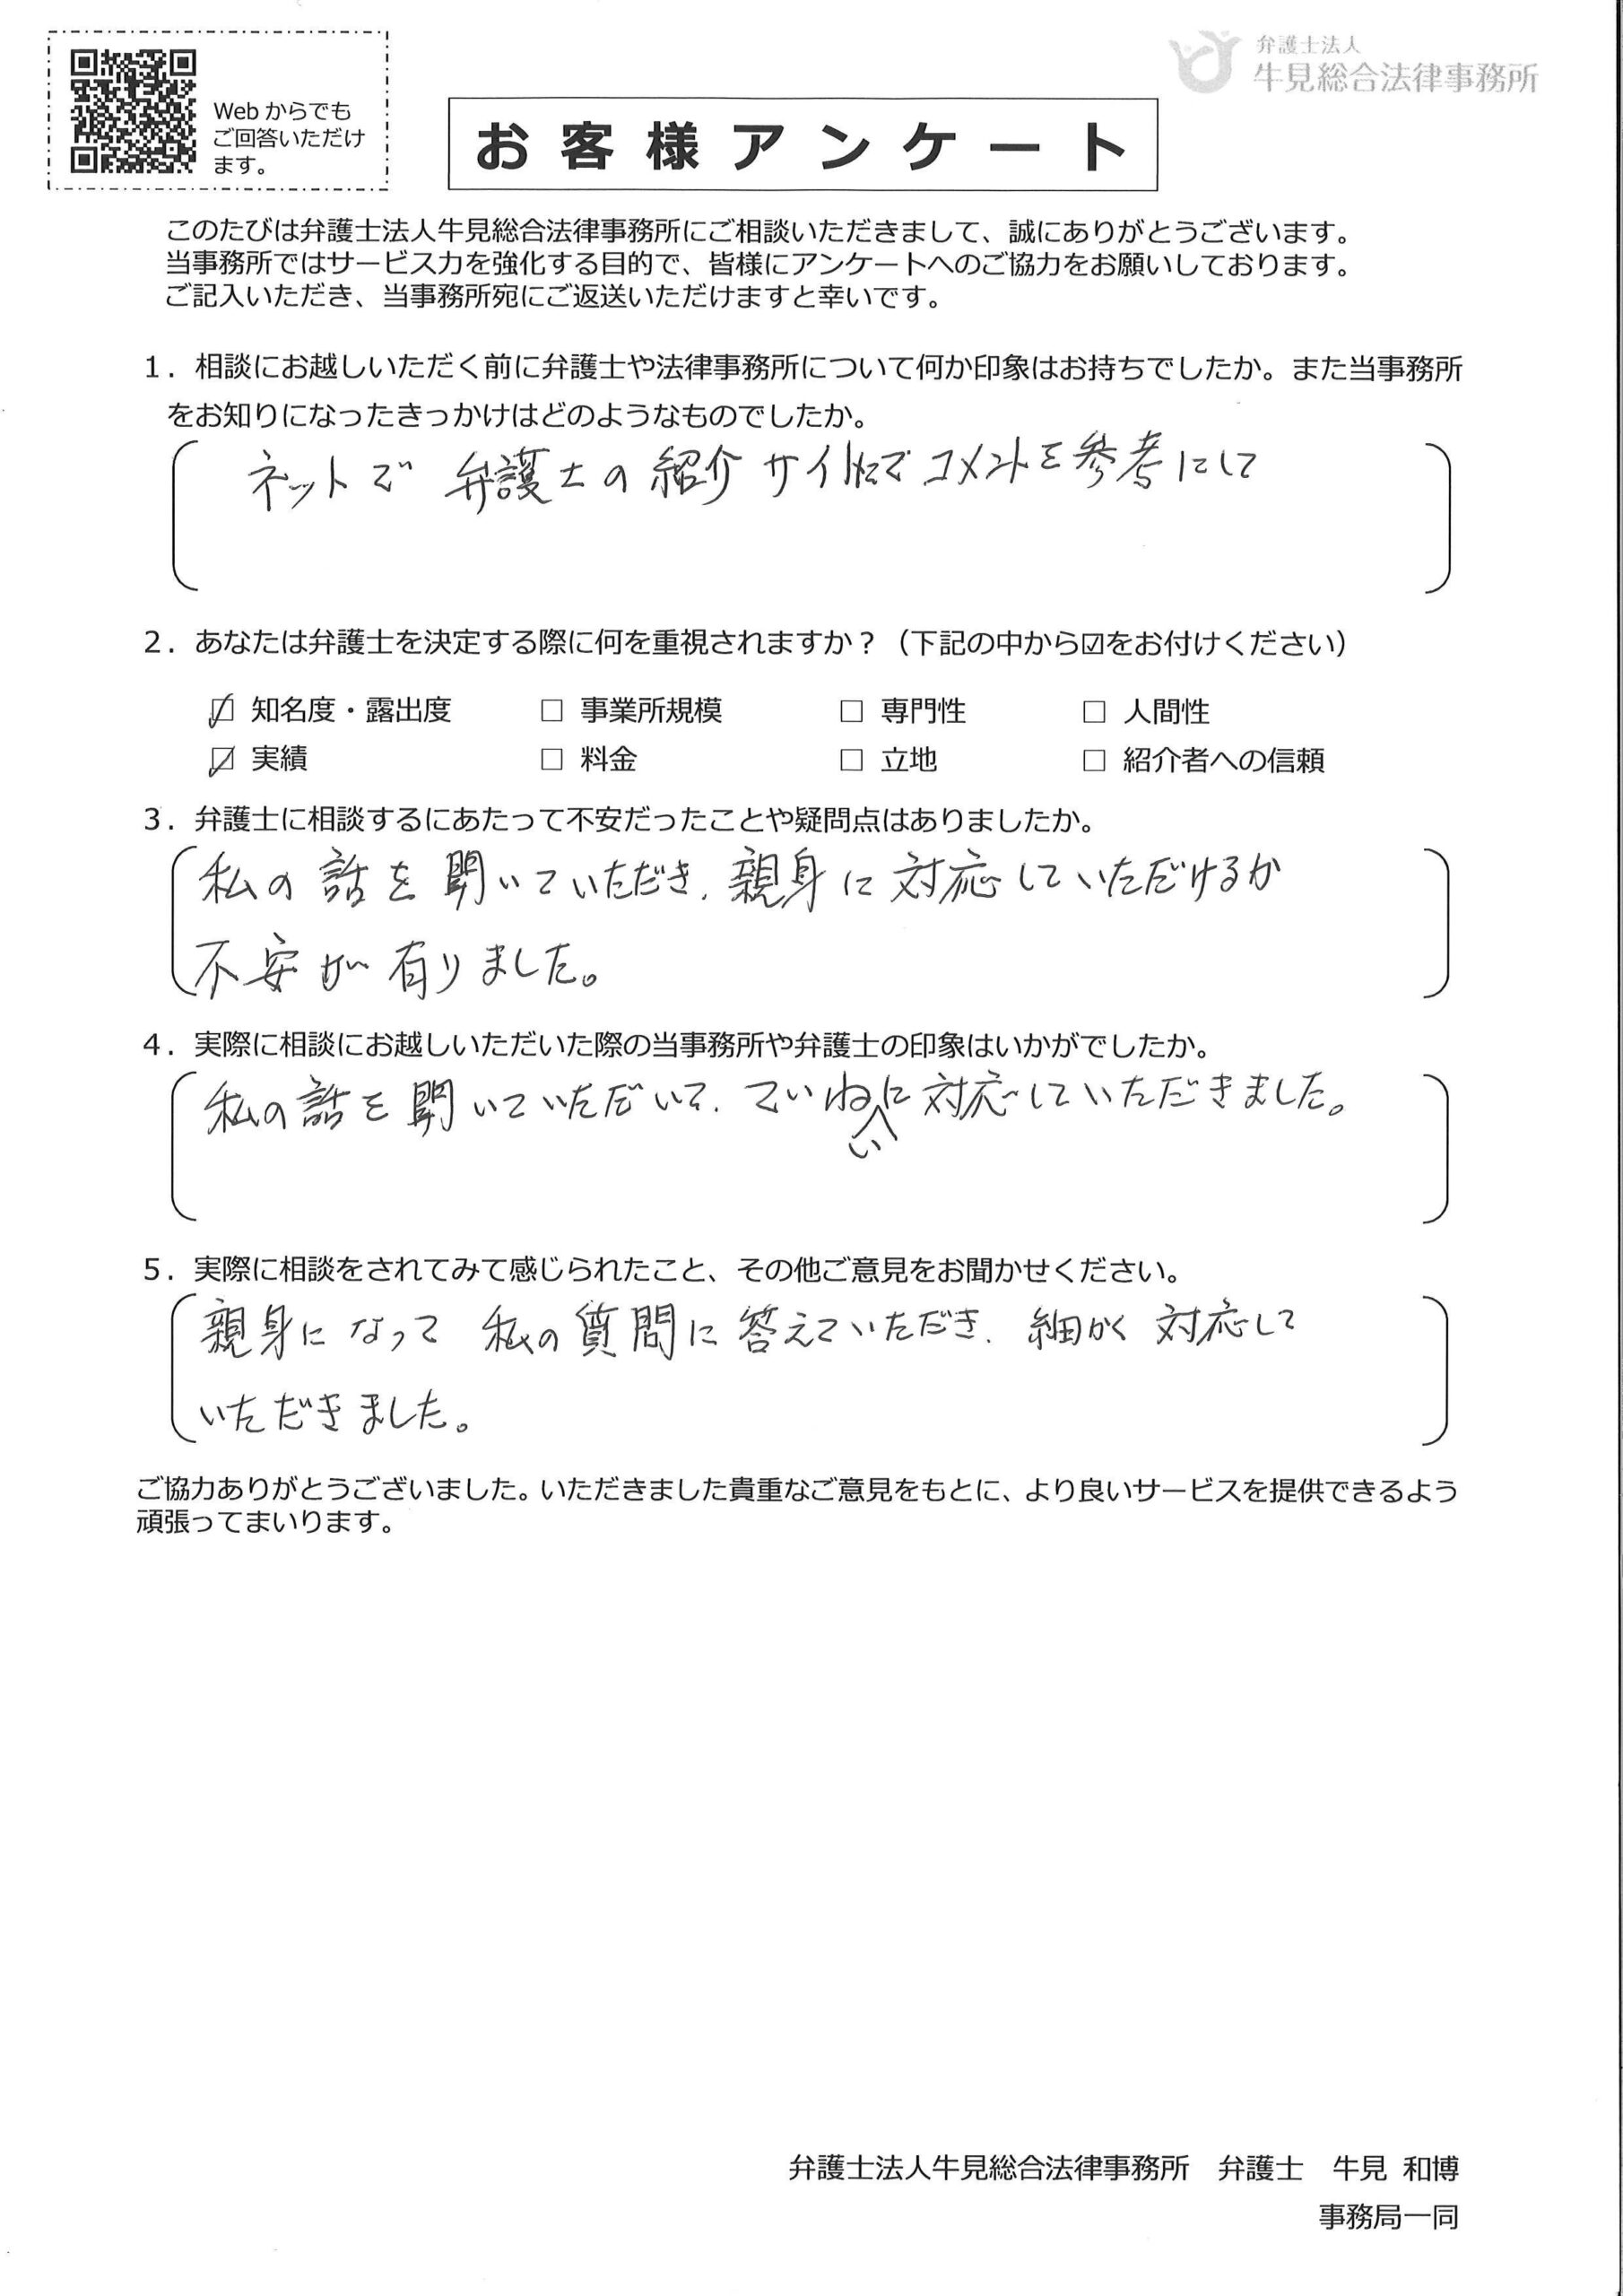 Webからでも
ご回答いただけ
ます。
弁護士法人
牛見総合法律事務所
お客様アンケート
このたびは弁護士法人牛見総合法律事務所にご相談いただきまして、誠にありがとうございます。
当事務所ではサービス力を強化する目的で、皆様にアンケートへのご協力をお願いしております。
ご記入いただき、当事務所宛にご返送いただけますと幸いです。
1．相談にお越しいただく前に弁護士や法律事務所について何か印象はお持ちでしたか。また当事務所
をお知りになったきっかけはどのようなものでしたか。
ネットで 弁護士の紹介サイトでコメントを参考にして
2．あなたは弁護士を決定する際に何を重視されますか？（下記の中から☑をお付けください）
☑ 知名度・露出度 □ 事業所規模 □ 専門性 □ 人間性
☑ 実績 □ 料金 □ 立地 □ 紹介者への信頼
3．弁護士に相談するにあたって不安だったことや疑問点はありましたか。
私の話を聞いていただき、親身に対応していただけるか
不安が有りました。
4．実際に相談にお越しいただいた際の当事務所や弁護士の印象はいかがでしたか。
私の話を聞いていただいて、ていねいに対応していただきました。
5．実際に相談をされてみて感じられたこと、その他ご意見をお聞かせください。
親身になって 私の質問に答えていただき、細かく対応して
いただきました。
ご協力ありがとうございました。いただきました貴重なご意見をもとに、より良いサービスを提供できるよう
頑張ってまいります。
弁護士法人牛見総合法律事務所　弁護士　牛見 和博
事務局一同